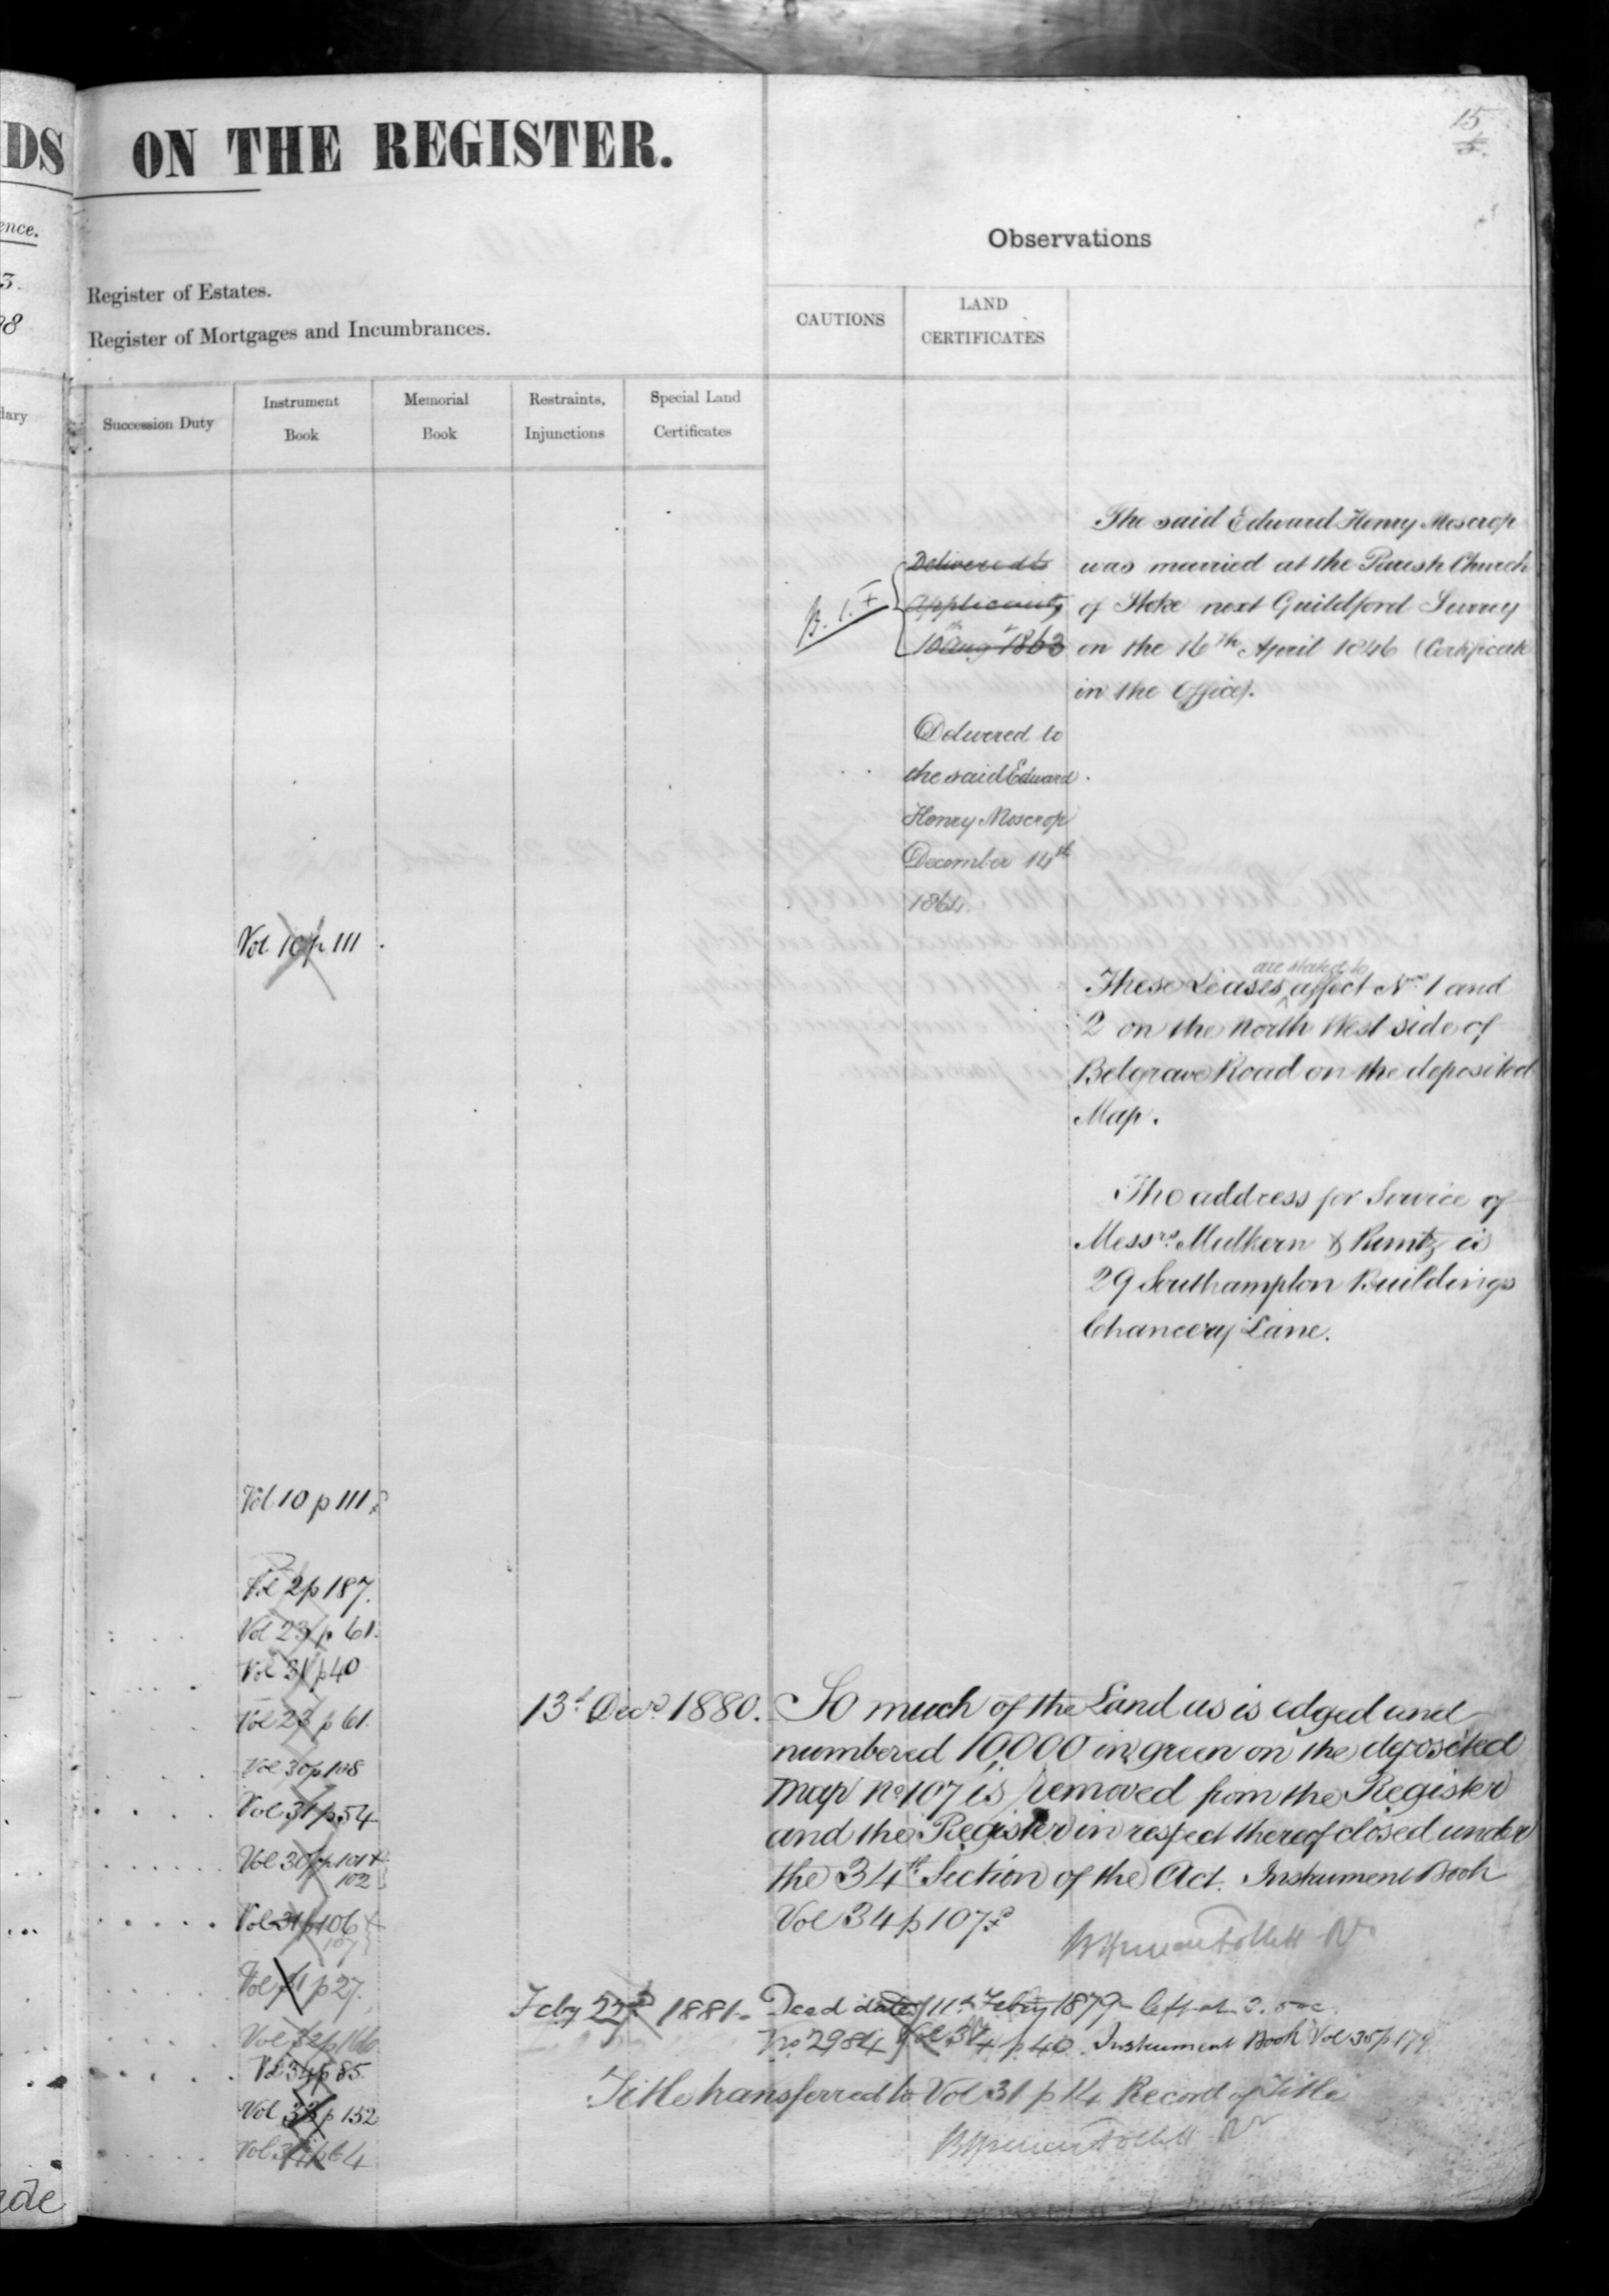 DS ON THE REGISTER.
15
ence.
3.
98
dary
Observations
Register of Estates.
Register of Mortgages and Incumbrances.
CAUTIONS
LAND
CERTIFICATES
Succession Duty
Instrument
Book
Memorial
Book
Restraints,
Injunctions
Special Land
Certificates
The said Edward Henry Moscrop
was married at the Parish Church
of Stoke next Guildford Surrey
on the 16th April 1846 (Certificate
in the Office).
B.
Delivered to
applicants
10th Aug 1863
Delivered to
the said Edward
Henry Moscrop
December 14th
1864.
Vol 10 p 111
are stated to
These Leases affect Nos 1 and
2 on the North West side of
Belgrave Road on the deposited
Map.
The address for Service of
Messrs. Mulkern & Runtz is
29 Southampton Buildings
Chancery Lane.
Vol 10 p 111
Vol 2 p 187.
Vol 23 p 61.
Vol 31 p 40
Vol 23 p 61.
Vol 30 p 108
Vol 31 p 54
Vol 30 p 101 +
102
Vol 31 p 106 +
107
Vol p 27.
Vol 32 p 166
Vol 34 p 85
Vol 33 p 152
Vol p 64
13th Decr 1880. So much of the Land as is edged and
numbered 10,000 in green on the deposited
Map No 107 is removed from the Register
and the Register in respect thereof closed under
the 34th Section of the Act. Instrument Book
Vol 34 p 107
Feby 22nd 1881. Deed dated 11th Feby 1879 left at
No 2984 Vol 34 p 40. Instrument Book Vol 35 p 179
Title transferred to Vol 31 p 14 Record of Title
ade